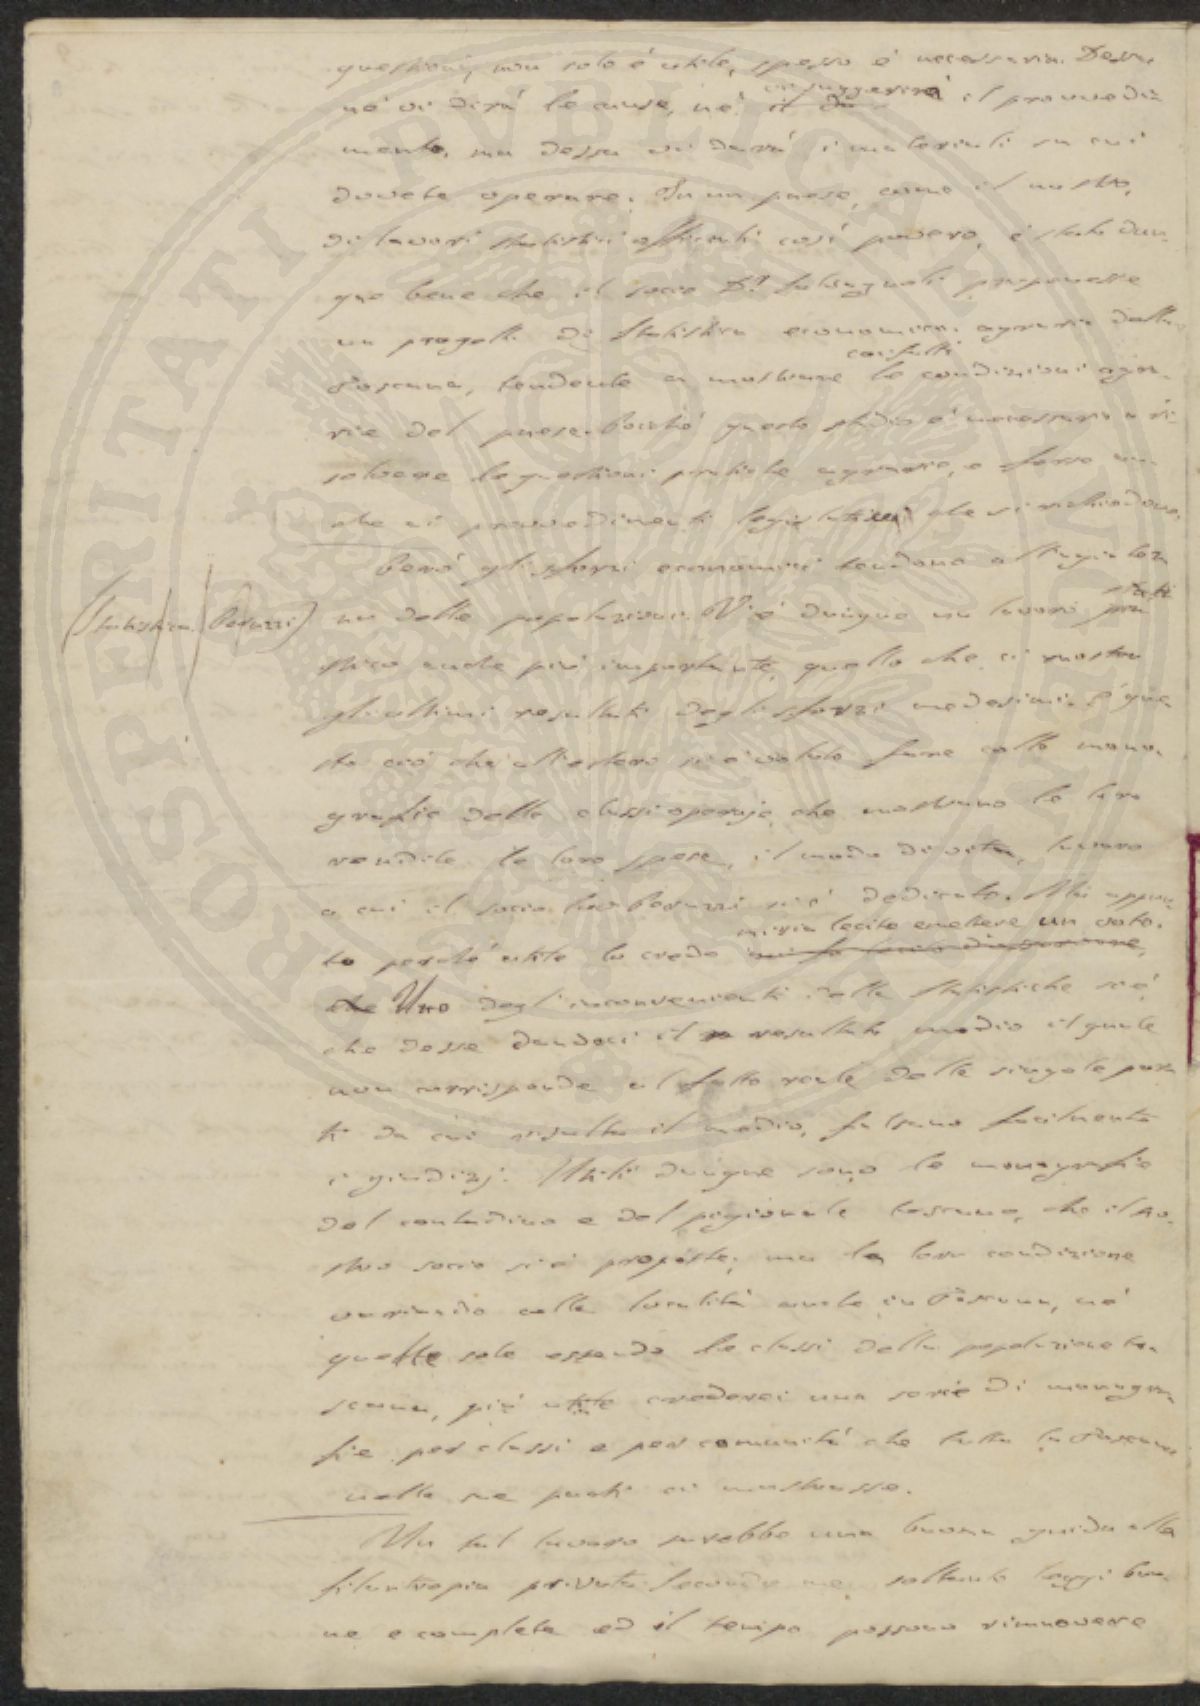 questioni, non solo è utile, spesso è necessaria. Dessa
nè vi dirà le cause, nè il di vi suggerirà il provvedi-
mento, ma dessa vi darà i materiali su cui
dovete operare. In un paese, come il nostro,
di lavori statistici officiali così povero, è stato dun-
que bene che il socio D.r Salvagnoli proponesse
un progetto di statistica economico agraria della
Toscana, tendente a mostrare coi fatti le condizioni agra-
rie del paese. Perchè questo studio è necessario a ri-
solvere le questioni pratiche agrarie, e forse an-
che ai provvedimenti legislativi che si richiedono.
Però gli sforzi economici tendono all'agiatez-
(Statistica Peruzzi)
za delle popolazioni. V'è dunque un lavoro stati
stico anche più importante, quello che ci mostra
gli ultimi resultati degli sforzi medesimi. È que-
sto ciò che all'estero si è voluto fare colle mono-
grafie delle classi operaje, che mostrano le loro
rendite le loro spese, il modo di vita, lavoro
a cui il socio Peruzzi si è dedicato. Ma appun-
to perchè utile lo credo mi sia lecito emettere un voto.
che Uno degl'inconvenienti delle statistiche si è,
che desse dandoci il resultato medio il quale
non corrisponde al fatto reale delle singole par-
ti da cui risulta il medio, falsano facilmente
i giudizj. Utili dunque sono le monografie
del contadino e del pigionale toscano, che il no-
stro socio si è proposte; ma la loro condizione
variando colle località anche in Toscana, nè
quelle sole essendo le classi della popolazione to-
scana, più utile crederei una serie di monogra-
fie per classi e per comunità che tutta la Toscana
nelle sue parti ci mostrasse.
Un tal lavoro sarebbe una buona guida alla
filantropia privata. Secondo me, soltanto leggi buo-
ne e complete ed il tempo possono rimuovere